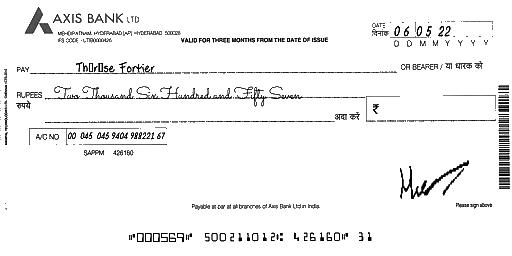 AXIS BANK LTD
MEHDIPATNAM, HYDERABAD [AP] - HYDERABAD 500028
IFS CODE - UTIB0000426
VALID FOR THREE MONTHS FROM THE DATE OF ISSUE
DATE
दिनांक 06 05 22
D D M M Y Y Y Y
PAY Th0r0se Fortier OR BEARER / या धारक को
RUPEES Two Thousand Six Hundred and Fifty Seven
रुपये अदा करें ₹
A/C NO 00 045 045 9404 988221 67
SAPPM 426160
Payable at par at all branches of Axis Bank Ltd in India.
Please sign above
"000569" 500211012: 426160" 31